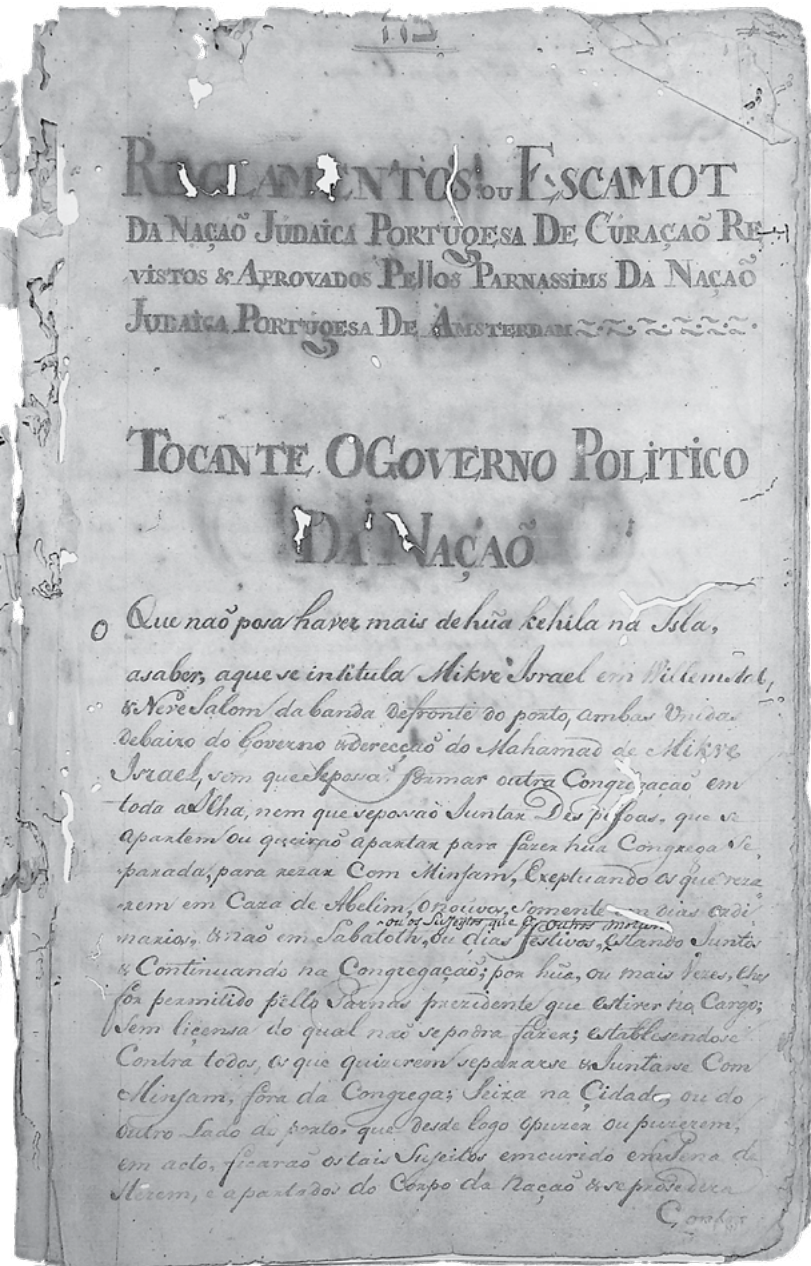 REGLAMENTOS, OU ESCAMOT
DA NAÇAÕ JUDAICA PORTUGESA DE CURAÇAÕ RE
VISTOS & APROVADOS PELLOS PARNASSIMS DA NAÇAÕ
JUDAICA PORTUGESA DE AMSTERDAM
TOCANTE O GOVERNO POLITICO
DA NAÇAÕ
O Que naõ posa haver mais de hũa kehila na Isla,
asaber, aque se intitula Mikvé Israel em Willemstad,
& Nevé Salom da banda defronte do porto, ambas Unidas
debaixo do Governo & derecçaõ do Mahamad de Mikvé
Israel, sem que se possa formar outra Congregaçaõ em
toda a Ilha, nem que se possaõ Juntar Des pessoas, que se
apartem ou queiraõ apartar para fazer hũa Congrega Se
parada, para rezar Com Minjam, Exeptuando os que reza
rem em Caza de Abelim, O nouvos, somente em dias ordi
ou os Sujeitos que
narios, & naõ em Sabatoth, ou dias festivos, estando Juntos
& Continuando na Congregaçaõ; por hũa, ou mais Vezes, lhes
for permitido pello Parnas prezidente que estiver no Cargo;
Sem liçensa do qual naõ se podra fazer; establesendose
Contra todos, os que quizerem separarse & Juntarse Com
Minjam, fora da Congrega; Seixa na Çidade, ou do
outro Lado do porto, que desde logo o puzer ou puzerem,
em acto, ficaraõ os tais Sujeitos emcurido em Pena de
Herem, e apartados do Corpo da Naçaõ & se prosedera